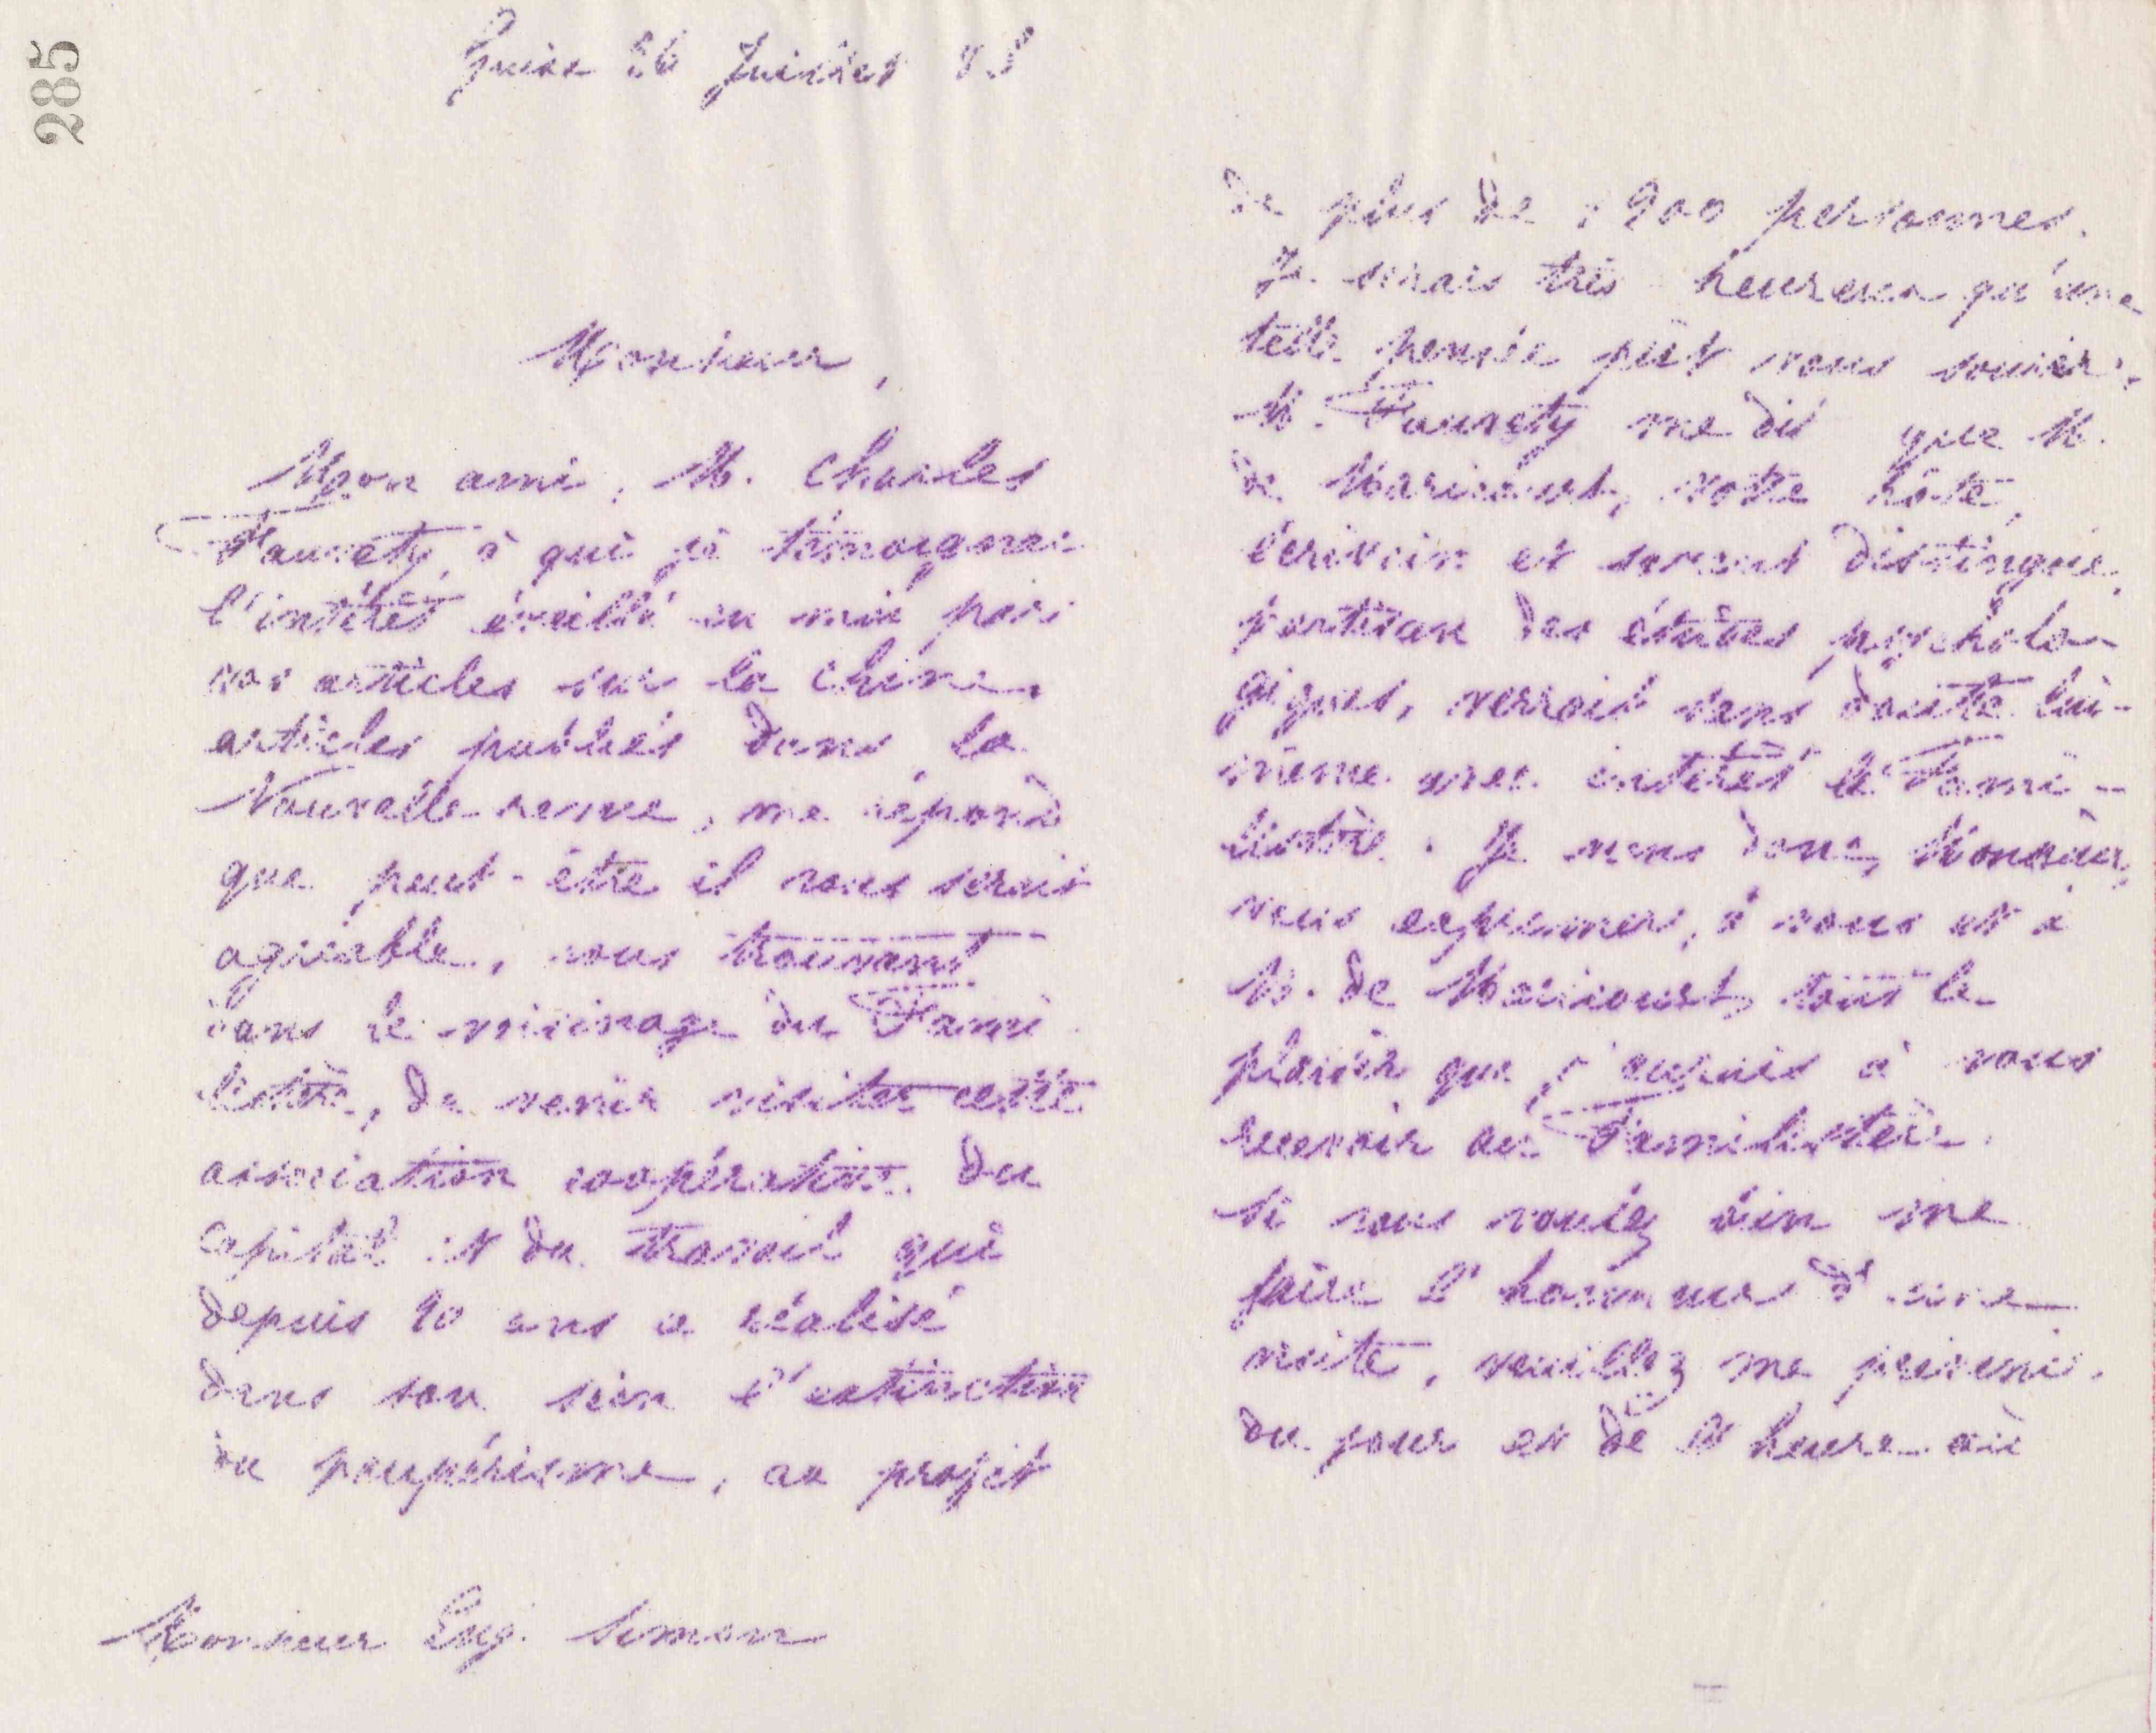 285
Guise 26 Juillet 85
Monsieur,
Mon ami, M. Charles
Fauvety, à qui je témoignai
l'intérêt éveillé en moi par
vos articles sur la Chine,
articles publiés dans la
Nouvelle revue, me répond
que peut-être il vous serait
agréable, vous trouvant
dans le voisinage du Fami
listère, de venir visiter cette
association coopérative du
capital et du travail qui
depuis 20 ans a réalisé
dans son sein l'extinction
du paupérisme, au profit
Monsieur Eug. Simon
de plus de 1900 personnes.
Je serais très heureux qu'une
telle pensée pût vous sourire.
M. Fauvety me dit que M.
de Maricourt, votre hôte,
écrivain et savant distingué,
partisan des études psycholo-
giques, verrait sans doute lui-
même avec intérêt le Fami-
listère. Je viens donc, Monsieur,
vous exprimer, à vous et à
M. de Maricourt, tout le
plaisir que j'aurais à vous
recevoir au Familistère.
Si vous voulez bien me
faire l'honneur d'une
visite, veuillez me prévenir
du jour et de l'heure où